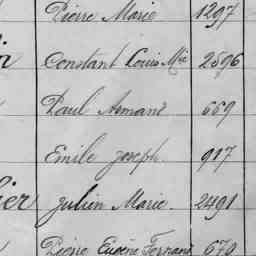 Pierre Marie 1297
Constant Louis Mie 2696
Paul Armand 669
Emile Joseph 917
ier Julien Marie. 2491
Pierre Eugène Fernand 679